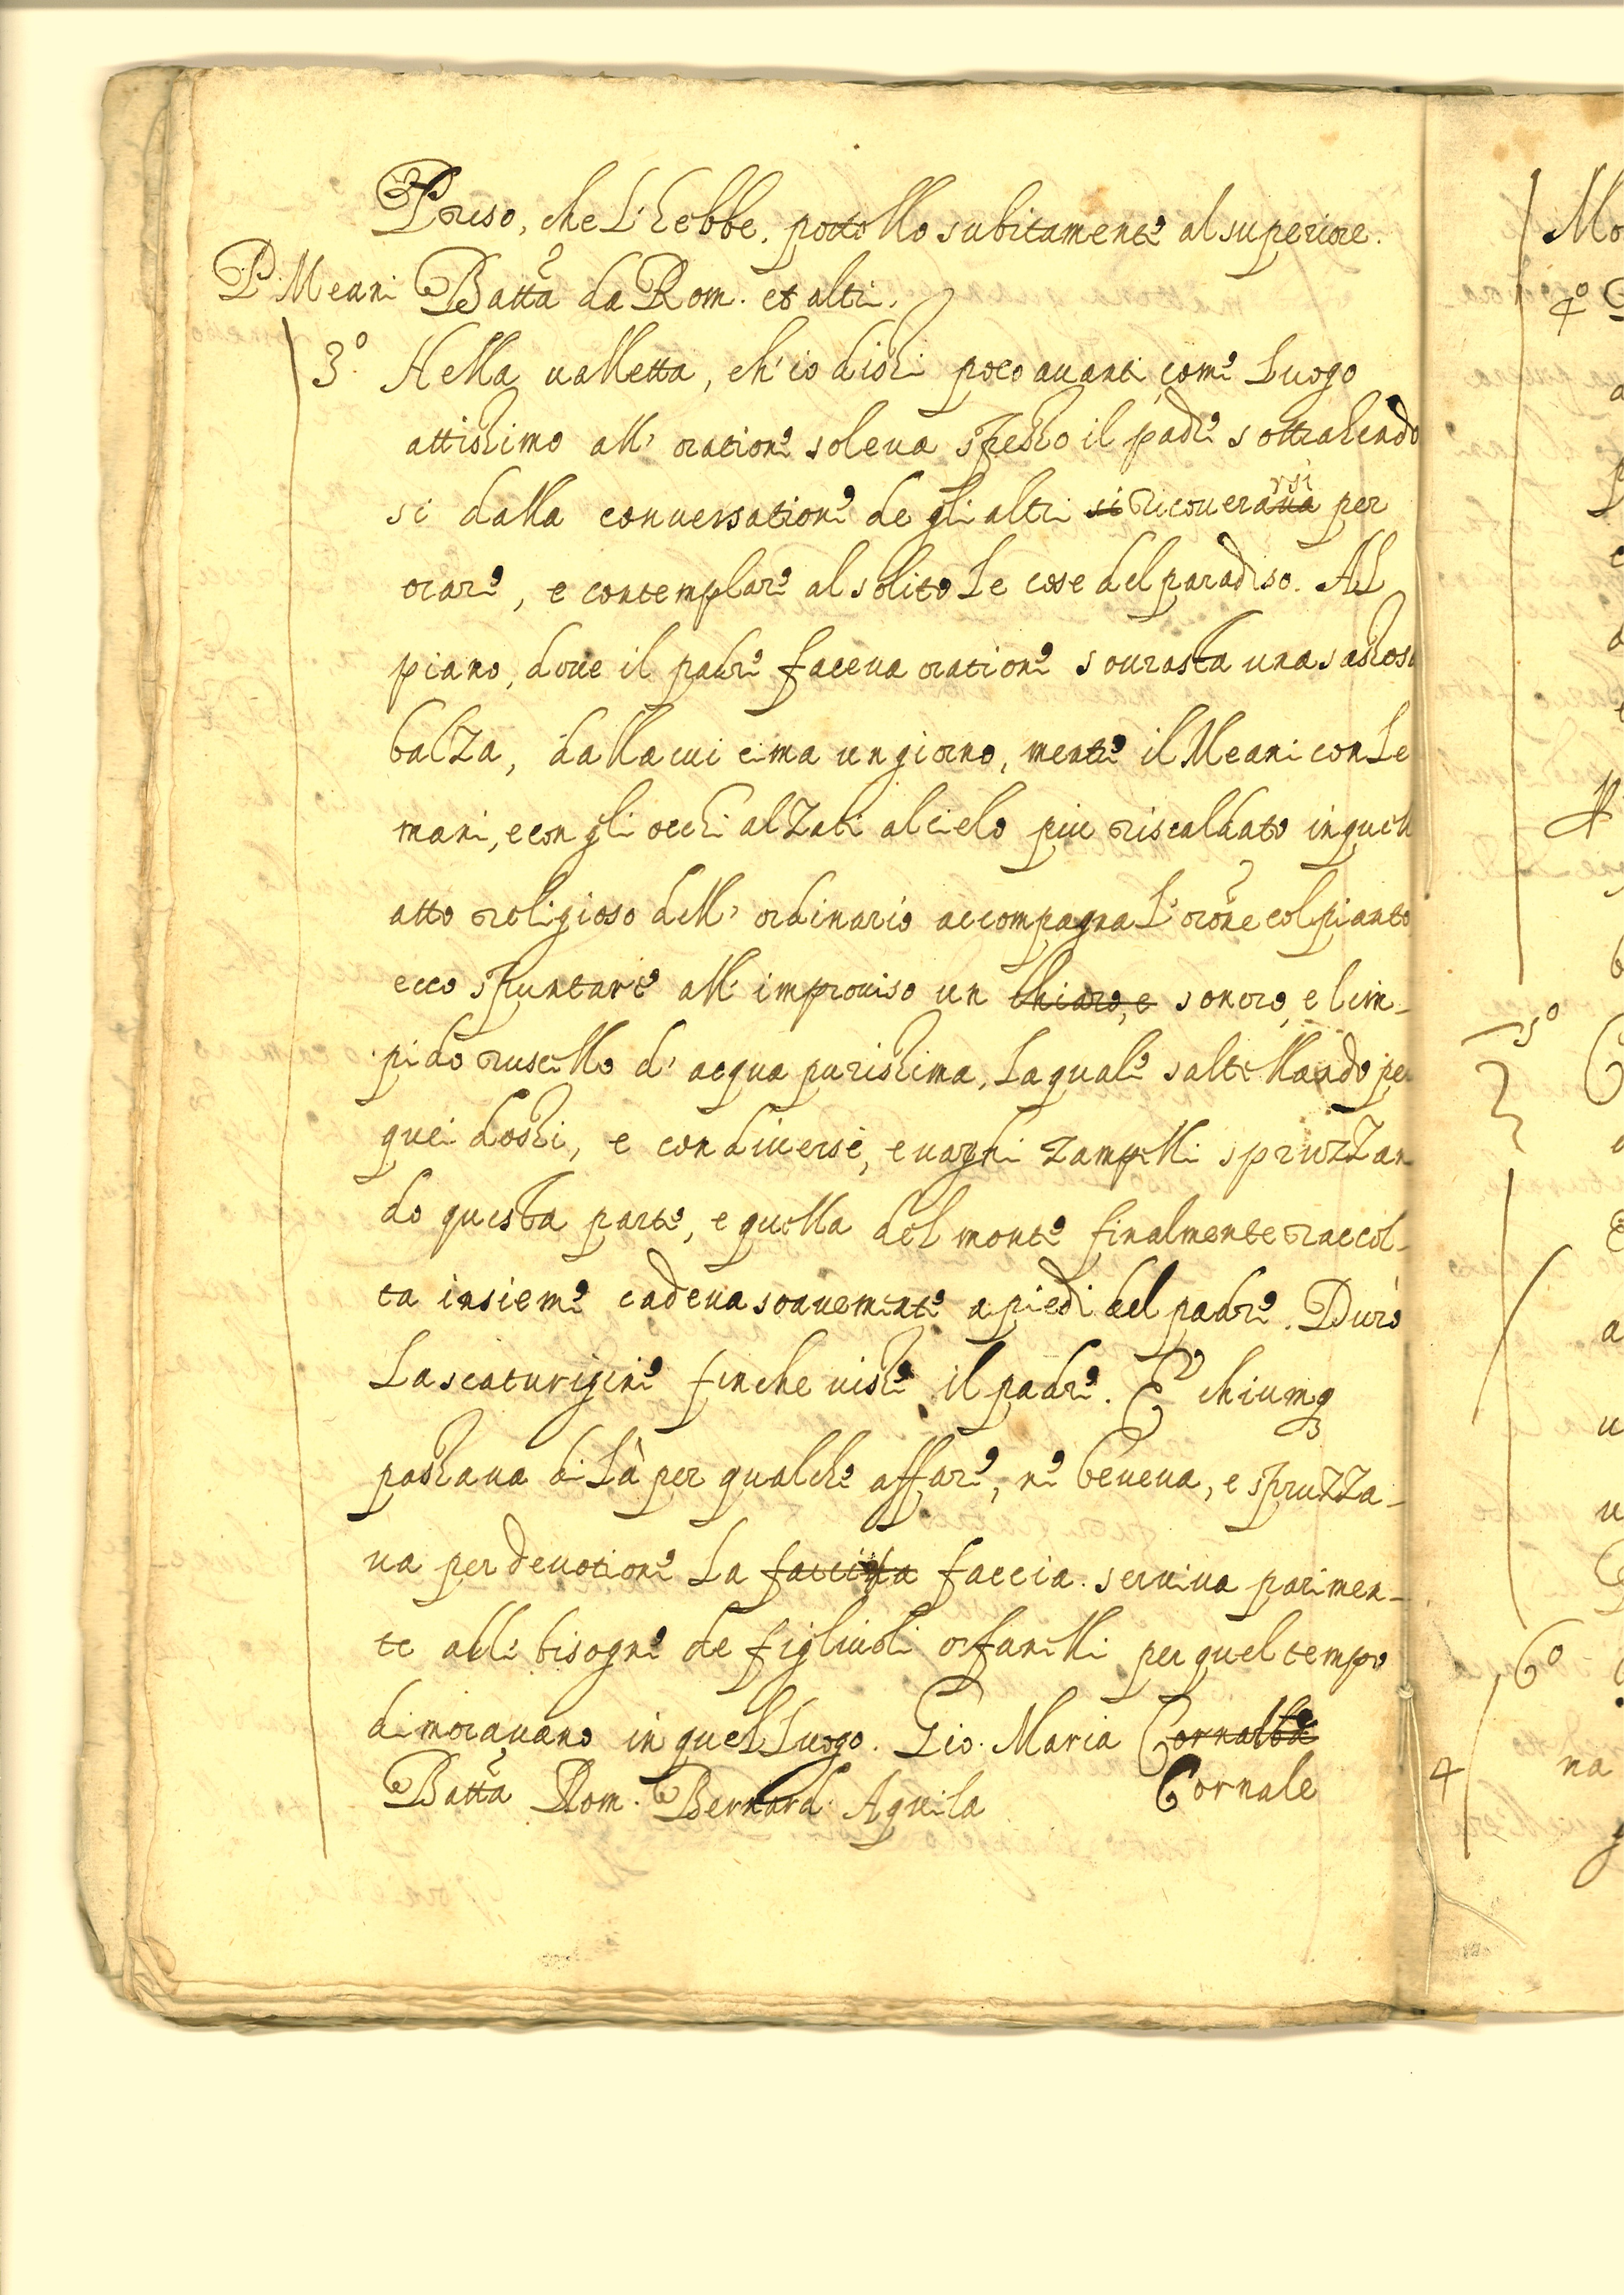 Preso, che l'hebbe, portollo subitamente al superiore.
P. Meani Batta da Rom. et altri.
3º Nella valletta, ch'io dissi poco avanti, come luogo
attissimo all'oratione soleva spesso il padre sottrahendo
si dalla conversatione de gli altri si ricoverava rsi per
orare, e contemplare al solito le cose del paradiso. Al
piano, dove il padre faceva oratione sovrasta una sassosa
balza, dalla cui cima un giorno, mentre il Meani con le
mani, e con gli occhi alzati al cielo più riscaldato in quell
atto religioso dell'ordinario accompagna l'orõne col pianto
ecco spuntare all'improviso un chiaro, e sonoro, e lim-
pido ruscello d'acqua purissima, la quale saltellando per
quei dossi, e con diverse, e vaghi zampilli spruzzan
do questa parte, e quella del monte finalmente raccol-
ta insieme cadeva soavemente a piedi del padre. Durò
la scaturigine finche visse il padre. E chiunq
passava di là per qualche affare, ne beveva, e spruzza-
va per devotione la faccia. serviva parimen-
te alli bisogni de figliuoli orfanelli per quel tempo
dimoravano in quel luogo. Gio. Maria Cornalba
Batta Rom. Bernard. Aquila Cornale
Mo
4º
5º
6º
4 na